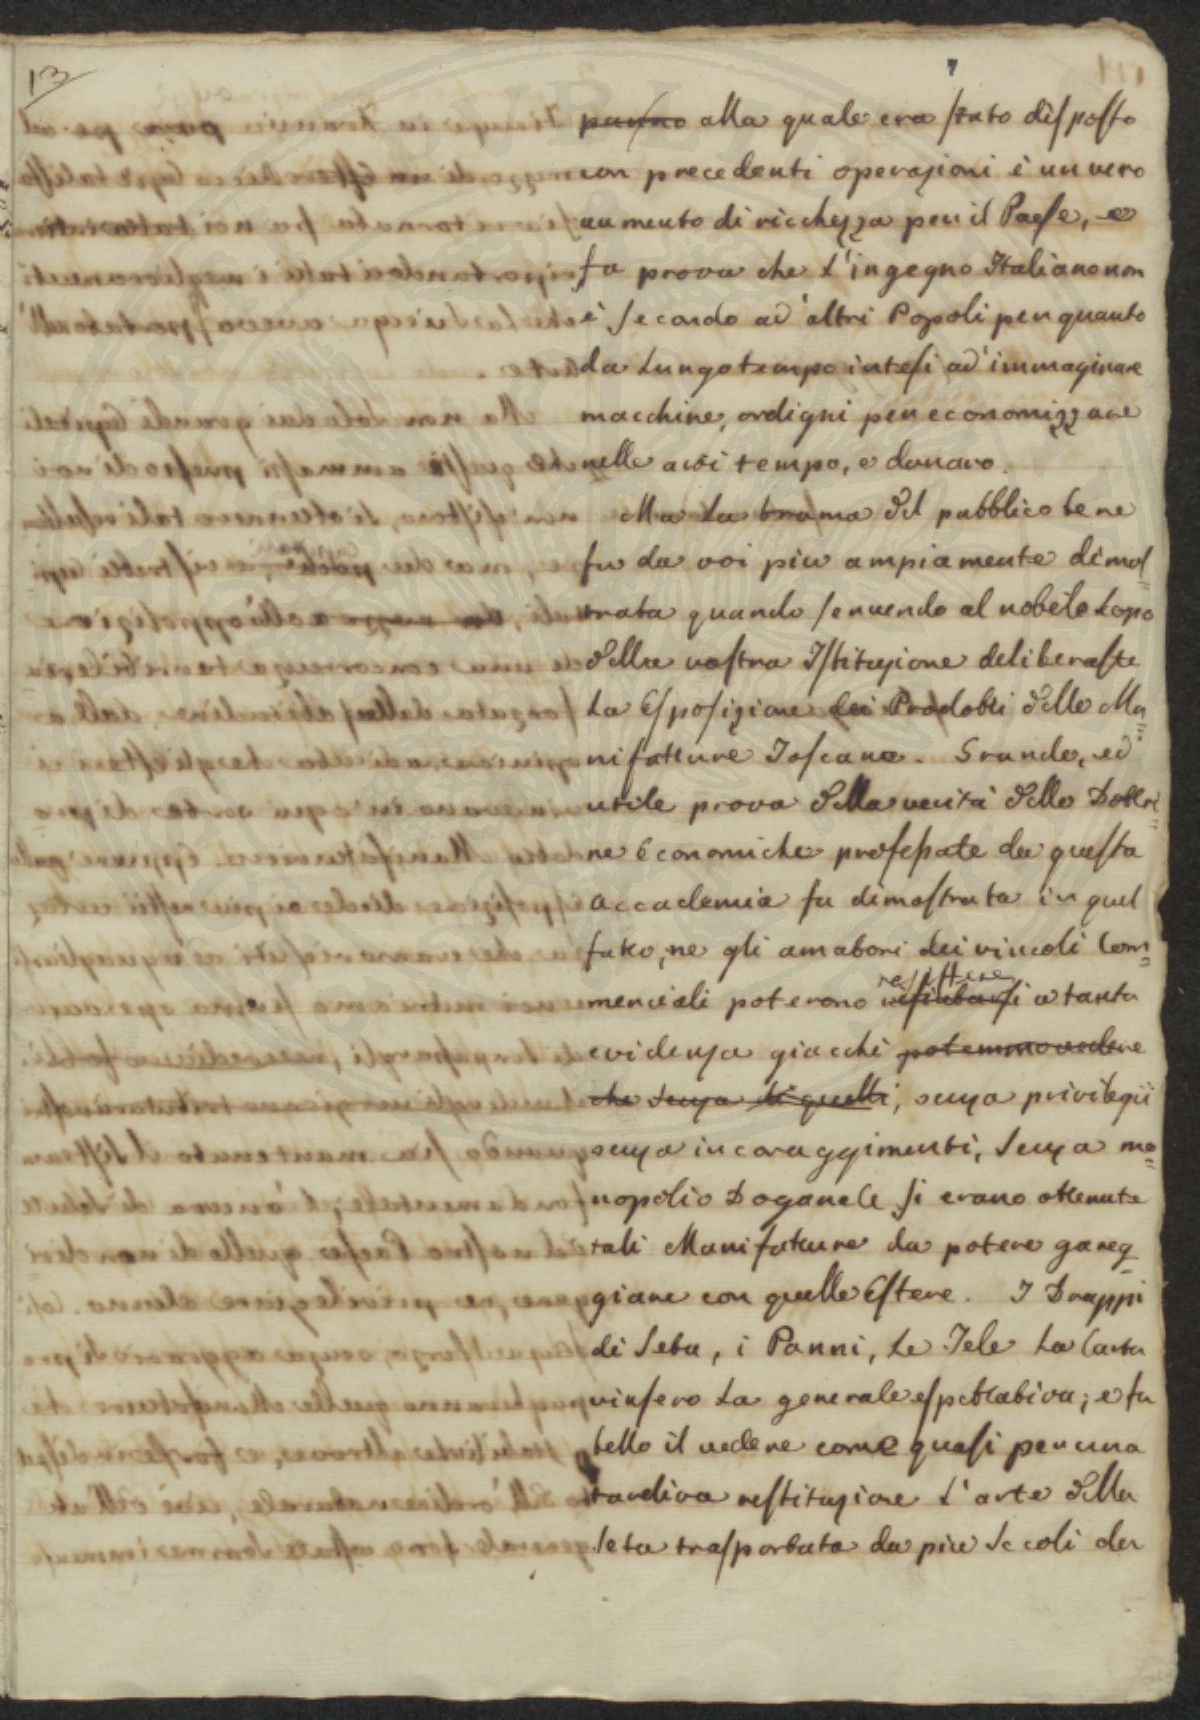 13
panno alla quale era stato disposto
con precedenti operazioni è un vero
aumento di ricchezza per il Paese, e
fa prova che l'ingegno Italiano non
è secondo ad altri Popoli per quanto
da lungo tempo intesi ad immaginare
macchine, ordigni per economizzare
nelle arti tempo, e danaro.
Ma la brama del pubblico bene
fu da voi piu ampiamente dimos=
trata quando servendo al nobile scopo
della vostra Istituzione deliberaste
la Esposizione dei Prodotti delle Ma=
nifatture Toscane. Grande, ed
utile prova della verità delle Dottri=
ne économiche professate da questa
accademia fu dimostrata in quel
fatto, ne gli amatori dei vincoli Com=
resistere
merciali poterono rifiutarsi a tanta
evidenza giacchè potemmo vedere
che senza di quelli, senza privilegii
senza incoraggimenti, senza mo=
nopolio Doganale si erano ottenute
tali Manifatture da potere gareg
giare con quelle Estere. I Drappi
di Seta, i Panni, le Tele la Carta
vinsero la generale espettativa; e fu
bello il vedere come quasi per una
tardiva restituzione l'arte della
Seta trasportata da piu secoli da